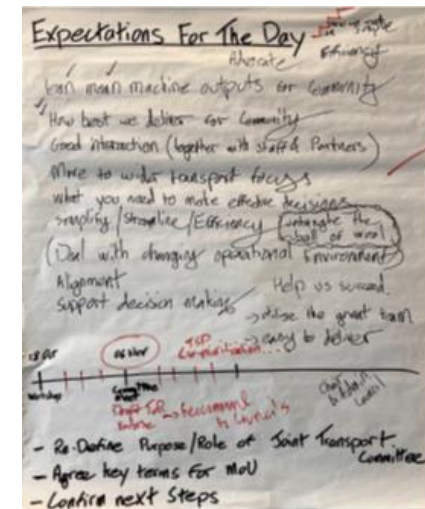 Expectations For The Day
Simple
Efficiency
Advocate
lean mean machine outputs for Community
How best we deliver for Community
Good interaction (together with staff & Partners)
More to wider transport focus
What you need to make effective decisions
Simplify / Streamline / Efficiency
untangle the ball of wool
(Deal with changing operational Environment)
Alignment
Help us succeed.
Support decision making
→ utilise the great team
→ easy to deliver
18 Oct
06 Nov
Workshop
Committee
→ Recommend to Councils
Council
- Re-Define Purpose/Role of Joint Transport Committee
- Agree key terms for MoU
- Confirm next Steps